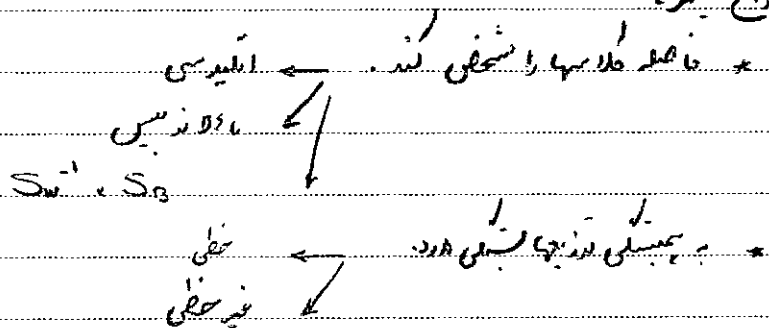 * فاصله کلاسها را مشخص کند. ← اقلیدسی
ماهالانوبیس
Sw⁻¹ . SB
* به همبستگی توزیعها بستگی دارد. ← خطی
غیر خطی